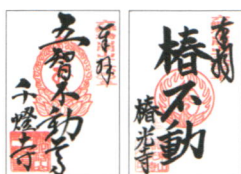 奉拝
五智不動尊
千燈寺
奉拝
椿不動
椿光寺